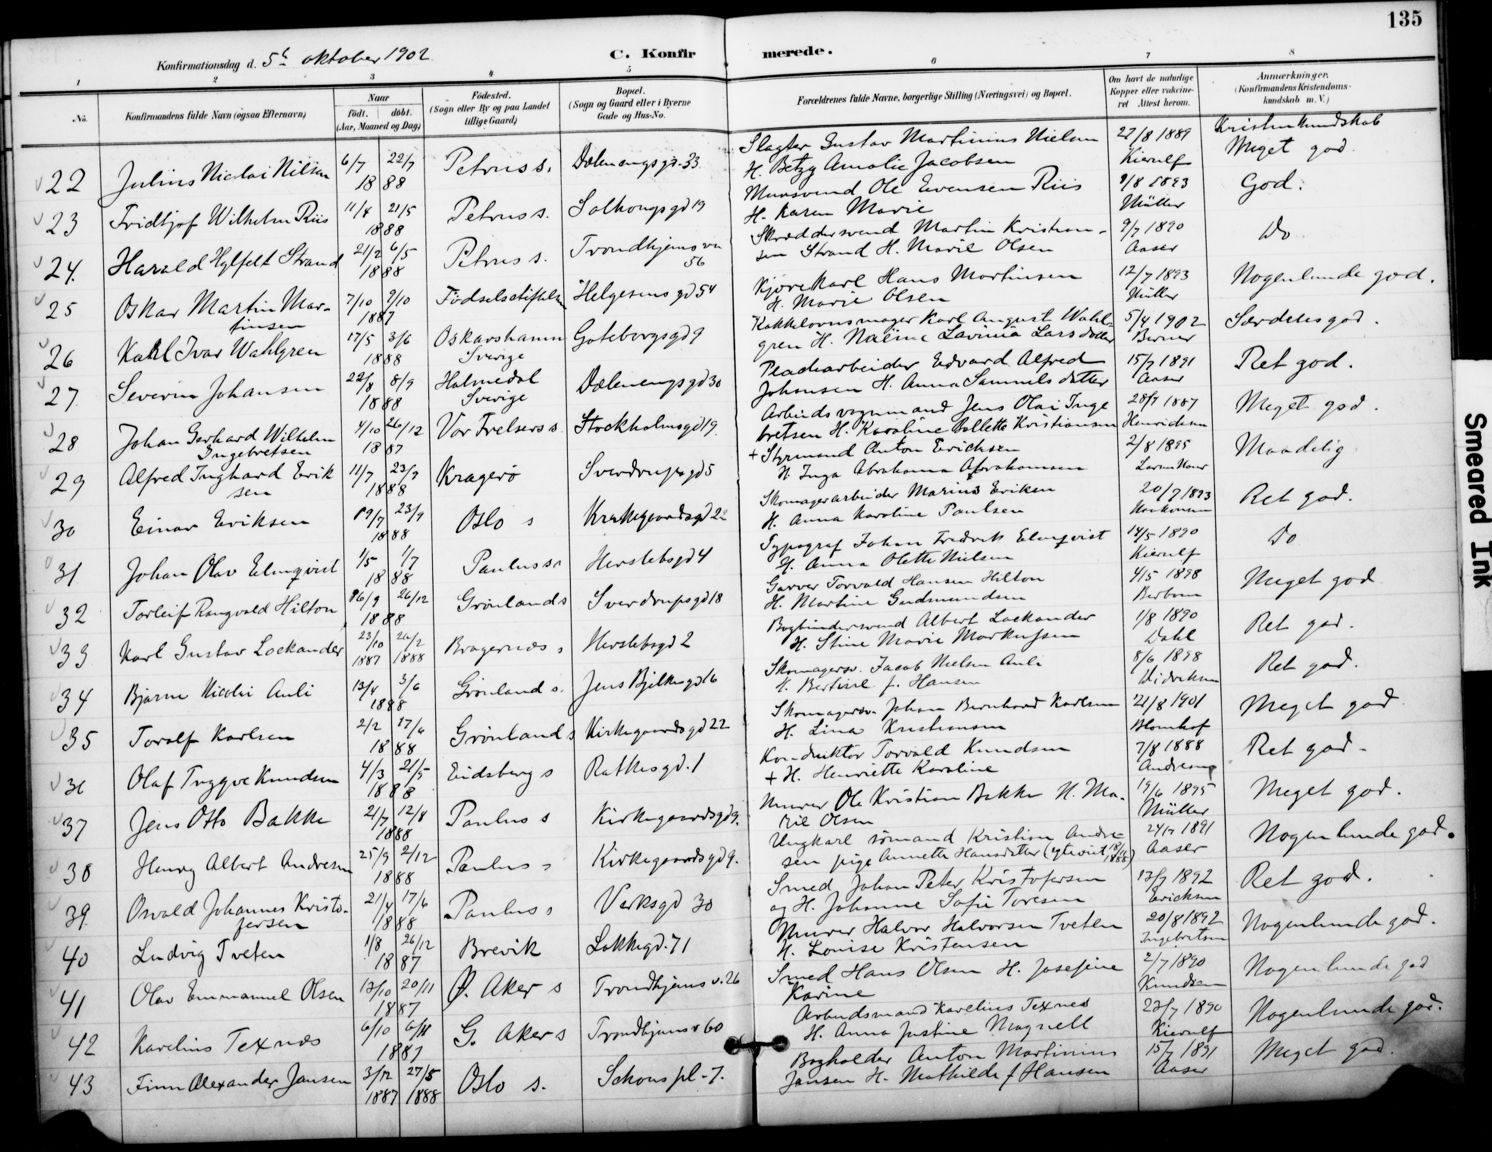 135
Konfirmationsdag d. 5te oktober 1902
C. Konfirmerede.
1 2 3 4 5 6 7 8
No.
Konfirmandens fulde Navn (ogsaa Efternavn)
Naar
født. døbt.
(Aar, Maaned og Dag)
Fødested.
(Sogn eller By og paa Landet
tillige Gaard)
Bopæl.
(Sogn og Gaard eller i Byerne
Gade og Hus-No.
Forældrenes fulde Navne, borgerlige Stilling (Næringsvei) og Bopæl.
Om havt de naturlige
Kopper eller vakcine-
ret Attest herom.
Anmærkninger.
(Konfirmandens Kristendoms-
kundskab m. V.)
Kristenkundskab
22 Julius Nicolai Nilsen 6/7 22/7 1888 Petrus s. Dælenengsgt. 33
Slagter Gustav Martinius Nielsen 27/8 1889 Meget god.
H. Betzy Amalie Jacobsen Kierulf
23 Fridtjof Wilhelm Riis 11/4 21/5 1888 Petrus s. Solhougsgd 19
Murersvend Ole Evensen Riis 9/8 1893 God.
H. Karen Marie Müller
24. Harald Hylfelt Strand 21/2 6/5 1888 Petrus s. Trondhjemsvn 56
Skræddersvend Martin Kristian- 9/7 1890 Do
sen Strand H. Marie Olsen Aaser
25 Oskar Martin Mar-
tinsen 7/10 9/10 1887 Fødselsstiftelsen Helgesens gd 54
Kjørekarl Hans Martinsen 12/7 1893 Nogenlunde god.
H. Marie Olsen Müller
26 Karl Ivar Wahlgren 17/5 3/6 1888 Oskarshamn
Sverige Gøteborgsgd 9
Kakkelovnsmager Karl August Wahl- 5/4 1902 Særdeles god.
gren H. Naëma Lavinia Larsdotter Berner
27 Severin Johansen 22/8 8/9 1888 Holmedal
Sverige Dælenengsgd 30
Pladearbeider Edvard Alfred 15/7 1891 Ret god.
Johansen H. Anna Samuelsdatter Aaser
28 Johan Gerhard Wilhelm
Ingebretsen 4/10 26/12 1887 Vor Frelsers s. Stockholmsgd 19.
Arbeidsvognmand Jens Olai Inge 28/7 1887 Meget god.
bretsen H. Karoline Collette Kristiansen Henrichsen
29 Alfred Inghard Erik
sen 11/7 23/9 1888 Kragerø Sverdrupsgd 5
+ Styrmand Anton Erichsen 2/8 1895 Maadelig
H Inga Abrahama Abrahamsen
30 Einar Eriksen 23/9 1888 Oslo s Kirkegaardsgd 22
Skomagerarbeider Marius Eriksen 20/7 1893 Ret god.
H. Anna Karoline Paulsen
31 Johan Olav Elmqvist 1/5 1/7 1888 Paulus s. Herslebsgd 4
Typograf Johan Fredrik Elmqvist 14/5 1890 Do
H. Anna Olette Nilsen Kierulf
32 Torleif Rangvald Hilton 26/12 1888 Grønlands Sverdrupsgd 18
Garver Torvald Hansen Hilton 4/5 1898 Meget god
H. Martine Gudmundsen
33 Karl Gustav Lockander 23/10 1887 26/2 1888 Bragernæs s Herslebsgd 2
Bogbindersvend Albert Lockander 1/8 1890 Ret god.
H. Stine Marie Markussen Dahl
34 Bjarne Nicolai Auli 13/4 3/6 1888 Grønland s. Jens Bjelkesgd 16
Skomagersv. Jacob Nielsen Auli 8/6 1898 Ret god.
Hansen Didriksen
35 Toralf Karlsen 2/2 17/6 1888 Grønlands Kirkegaardsgd 22
Skomagersv. Johan Bernhard Karlsen 21/8 1901 Meget god
H. Lina Kristensen Blomhof
36 Olaf Tryggve Knudsen 4/3 21/5 1888 Eidsberg s Rathkesgd. 1
Konduktør Torvald Knudsen 7/8 1888 Ret god
+ H. Henriette Karoline
37 Jens Otto Bakke 21/7 12/8 1888 Paulus s Kirkegaardsgd 9.
Murer Ole Kristian Bakke H. Ma- 19/6 1895 Meget god.
rie Olsen Müller
38 Henry Albert Andresen 25/9 2/12 1888 Paulus s Kirkegaardsgd 9.
Ungkarl sømand Kristian Andre- 1891 Nogenlunde god.
sen pige Annette Hansdatter Aaser
39 Osvald Johannes Kristo-
fersen 21/4 17/6 1888 Paulus s Verksgd 30
Smed Johan Peter Kristofersen 1892 Ret god.
og H. Johanne Sofie Toresen Erichsen
40 Ludvig Tveten 1/8 26/12 1887 Brevik Løkkegd. 71
Murer Halvor Halvorsen Tveten 20/8 1892 Nogenlunde god.
H. Louise Kristensen Ingebretsen
41 Olav Emmanuel Olsen 13/10 20/11 1887 Ø. Aker s Trondhjems v. 26
Smed Hans Olsen H. Josefine 2/7 1890 Nogenlunde god
Karine Knudsen
42 Karelius Texnæs 6/10 1887 G. Aker s Trondhjemsv 60
Arbeidsmand Karelius Texnes 23/7 1890 Nogenlunde god.
H. Anna Justine Magnell Kierulf
43 Finn Alexander Jansen 3/12 1887 27/5 1888 Oslo s. Schous pl. 7.
Bogholder Anton Martinius 15/7 1891 Meget god.
Jansen H. Mathilde f Hansen Aaser
Smeared Ink